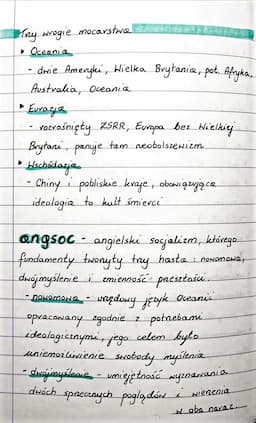 Trzy wrogie mocarstwa
▸ Oceania
- dwie Ameryki, Wielka Brytania, poł. Afryka,
Australia, Oceania
▸ Eurazja
- rozrośnięty ZSRR, Europa bez Wielkiej
Brytani, panuje tam neobolszewizm
▸ Wschódazja
- Chiny i pobliskie kraje, obowiązująca
ideologia to kult śmierci
angsoc - angielski socjalizm, którego
fundamenty tworzyły trzy hasła: nowomowa,
dwójmyślenie i zmienność przeszłości.
- nowomowa - urzędowy język Oceanii
opracowany zgodnie z potrzebami
ideologicznymi, jego celem było
uniemożliwienie swobody myślenia
- dwójmyślenie - umiejętność wyznawania
dwóch sprzecznych poglądów i wierzenia
w oba naraz